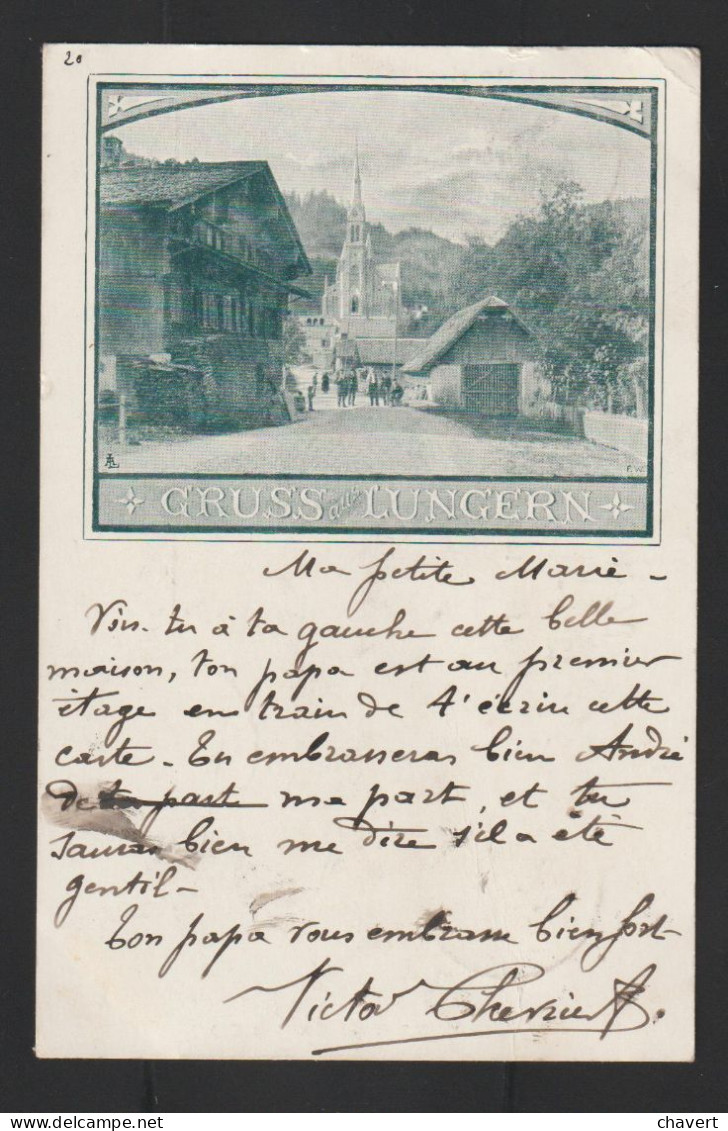 20
GRUSS aus LUNGERN
F.W.
Ma petite Marie -
Vois-tu à ta gauche cette belle
maison, ton papa est au premier
étage en train de t'écrire cette
carte - Tu embrasseras bien André
de ta part ma part, et tu
sauras bien me dire s'il a été
gentil -
Ton papa vous embrasse bien fort -
Victor
www.delcampe.net
chavert